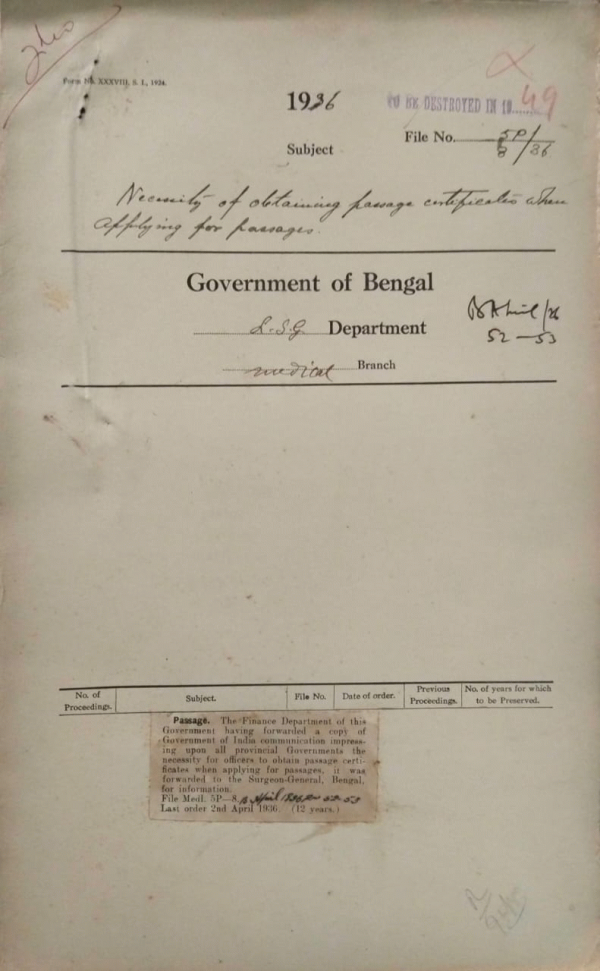 Form No. XXXVIII, S. I., 1934.
1936
TO BE DESTROYED IN 19 49
File No. 5P/8/36
Subject
Necessity of obtaining passage certificates when
applying for passages.
Government of Bengal
L.S.G. Department
52-53
medical Branch
No. of Proceedings.
Subject.
File No.
Date of order.
Previous Proceedings.
No. of years for which to be Preserved.
Passage. The Finance Department of this
Government having forwarded a copy of
Government of India communication impress-
ing upon all provincial Governments the
necessity for officers to obtain passage certi-
ficates when applying for passages, it was
forwarded to the Surgeon-General, Bengal,
for information.
File Medl. 5P—8, B April 1936 52-53
Last order 2nd April 1936. (12 years.)